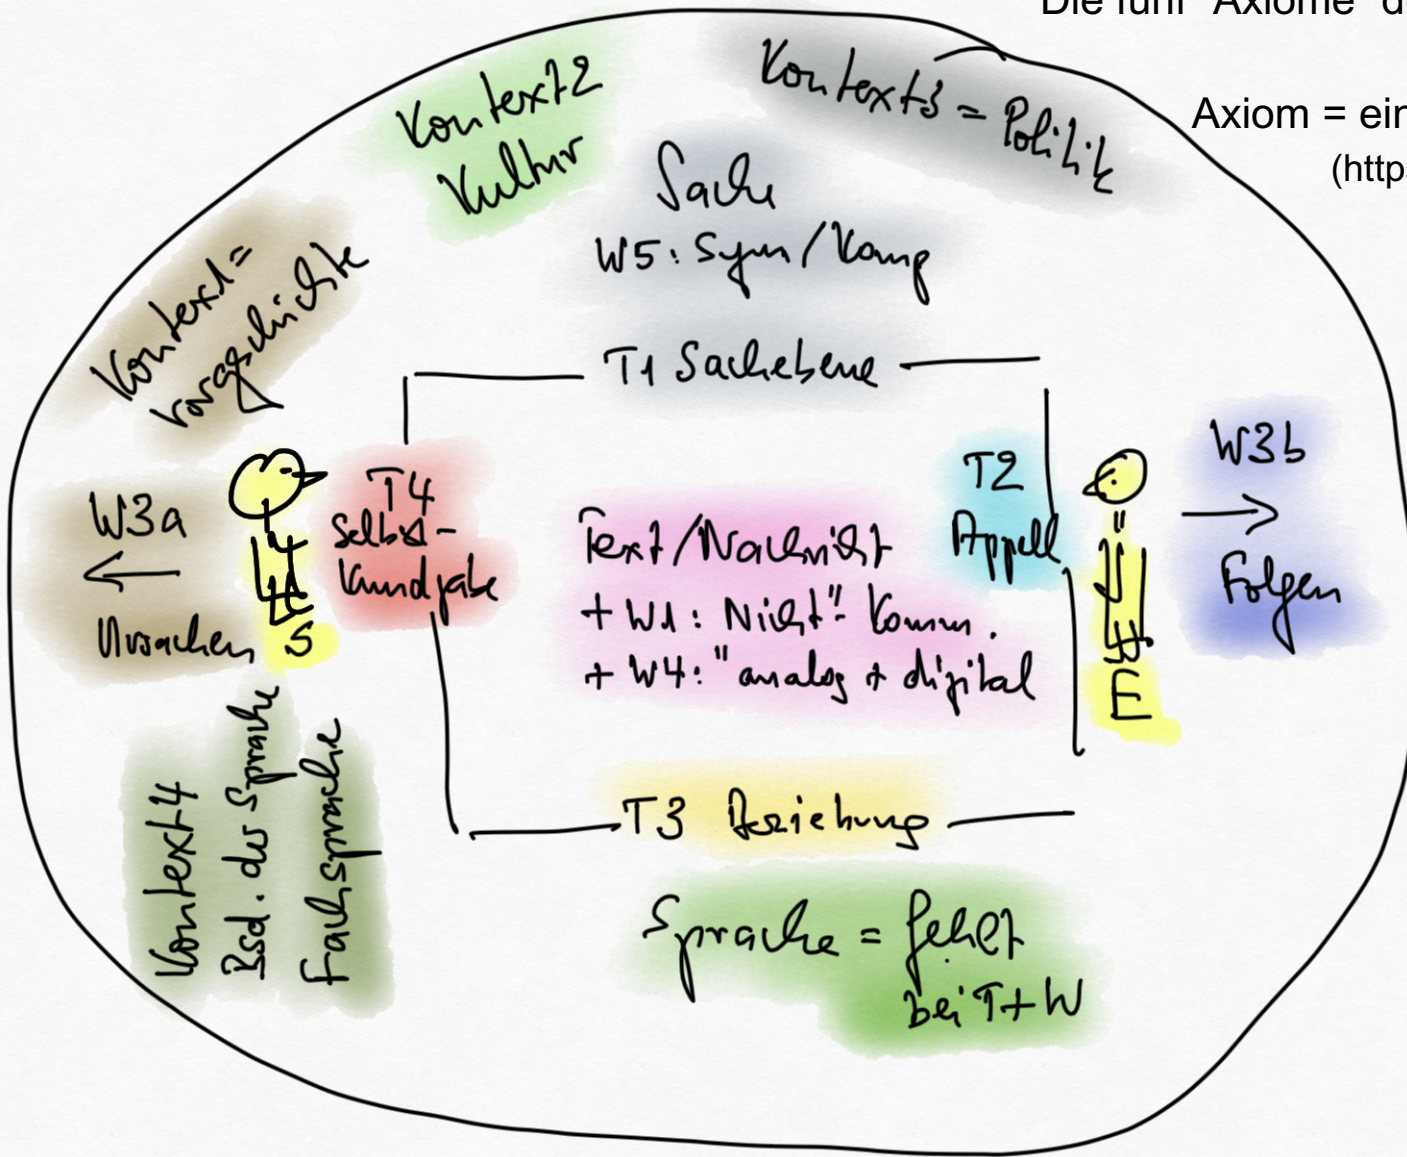 Die fünf "Axiome" de
Axiom = ein
(https
Kontext2
Kultur
Kontext3 = Politik
Sache
W5: Sym/Komp
Kontext1=
Vorgeschichte
T1 Sachebene
W3a
Ursachen
S
T4
Selbst-
Kundgabe
Text/Nachricht
+ W1: Nicht"-Komm.
+ W4: "analog + digital
T2
Appell
E
W3b
Folgen
Kontext4
Bsd. der Sprache
Fachsprache
T3 Beziehung
Sprache = fehlt
bei T+W